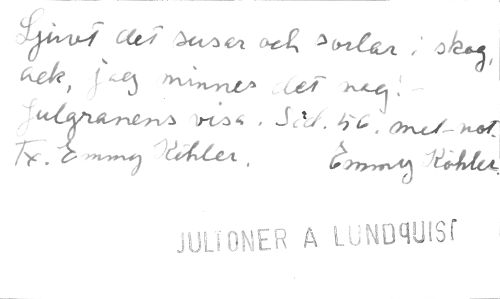 Ljuvt det susar och sorlar i skog,
ack, jag minnes det nog! -
Julgranens visa. Sid. 56. met-not.
Tx. Emmy Köhler. Emmy Köhler.
JULTONER A LUNDQUIST